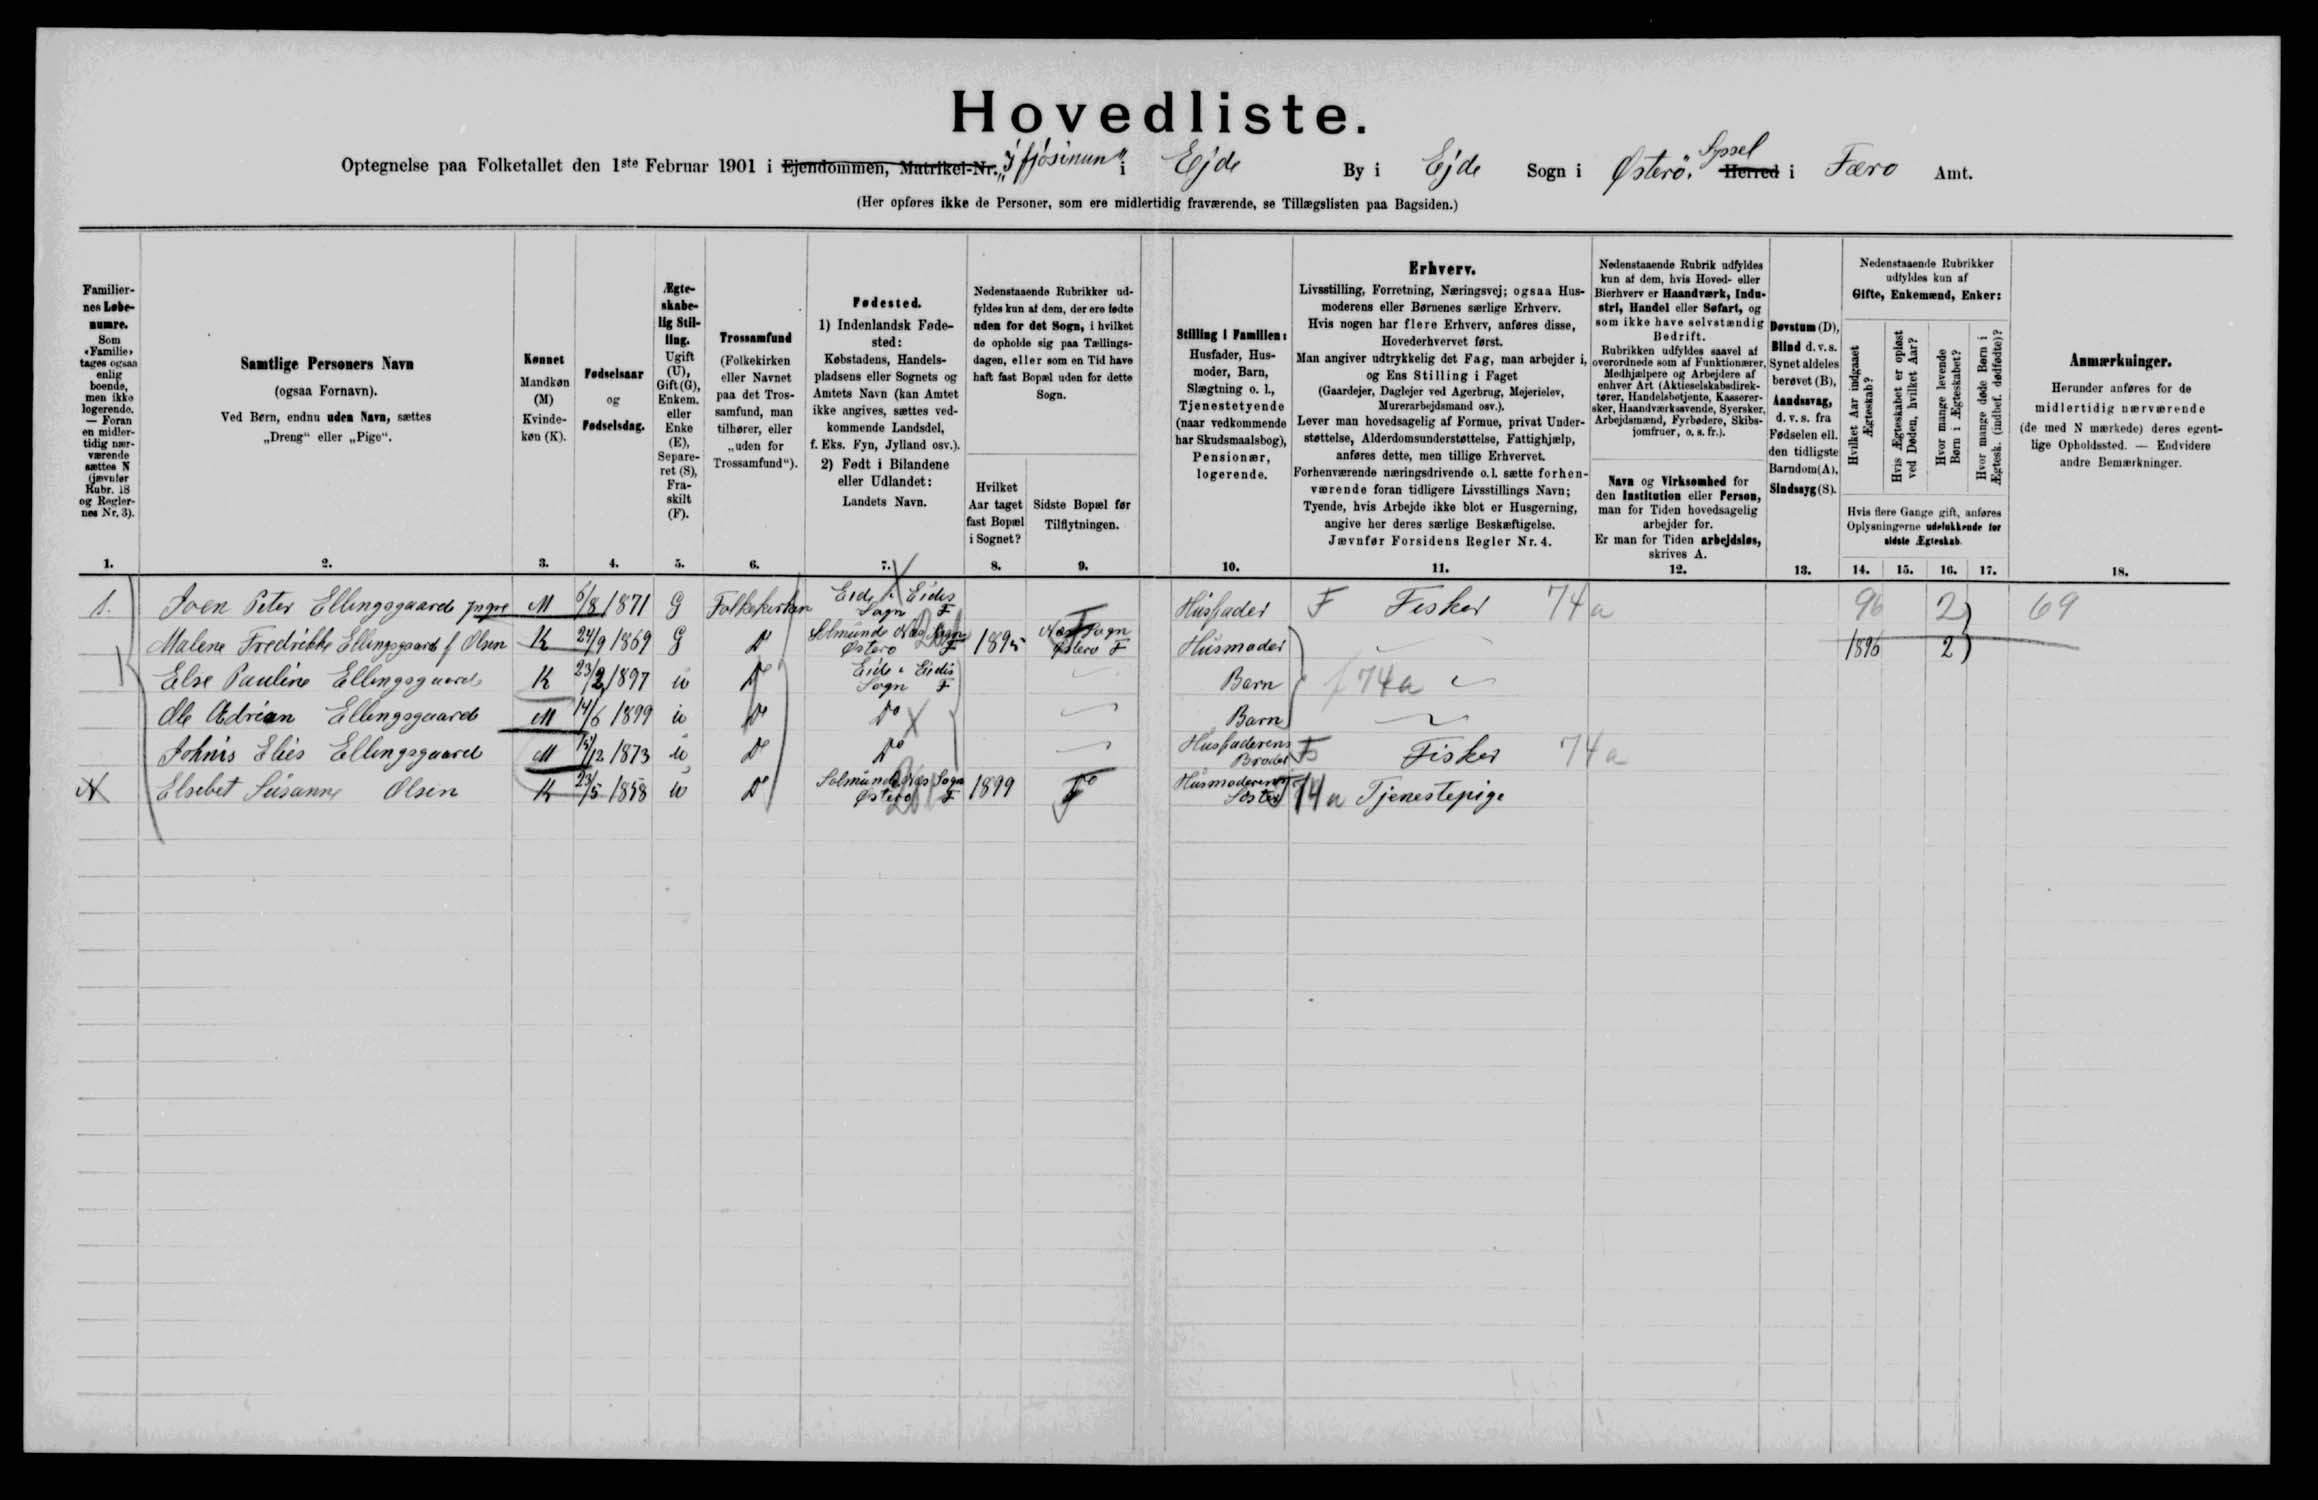 Hovedliste.
Optegnelse paa Folketallet den 1ste Februar 1901 i Ejendommen, Matrikel-Nr. „I fjósinun" i Ejde By i Ejde Sogn i Østerö. Syssel Herred i Færo Amt.
(Her opføres ikke de Personer, som ere midlertidig fraværende, se Tillægslisten paa Bagsiden.)
Familier-
nes Løbe-
numre.
Som
«Familie»
tages ogsaa
enlig
boende,
men ikke
logerende.
— Foran
en midler-
tidig nær-
værende
sættes N
(jævnfør
Rubr. 18
og Regler-
nes Nr. 3).
1.
Samtlige Personers Navn
(ogsaa Fornavn).
Ved Børn, endnu uden Navn, sættes
„Dreng" eller „Pige".
2.
Kønnet
Mandkøn
(M)
Kvinde-
køn (K).
3.
Fødselsaar
og
Fødselsdag.
4.
Ægte-
skabe-
lig Stil-
ling.
Ugift
(U),
Gift (G),
Enkem.
eller
Enke
(E),
Separe-
ret (S),
Fra-
skilt
(F).
5.
Trossamfund
(Folkekirken
eller Navnet
paa det Tros-
samfund, man
tilhører, eller
„uden for
Trossamfund").
6.
Fødested.
1) Indenlandsk Føde-
sted:
Købstadens, Handels-
pladsens eller Sognets og
Amtets Navn (kan Amtet
ikke angives, sættes ved-
kommende Landsdel,
f. Eks. Fyn, Jylland osv.).
2) Født i Bilandene
eller Udlandet:
Landets Navn.
7.
Nedenstaaende Rubrikker ud-
fyldes kun af dem, der ere fødte
uden for det Sogn, i hvilket
de opholde sig paa Tællings-
dagen, eller som en Tid have
haft fast Bopæl uden for dette
Sogn.
Hvilket
Aar taget
fast Bopæl
i Sognet?
8.
Sidste Bopæl før
Tilflytningen.
9.
Stilling i Familien:
Husfader, Hus-
moder, Barn,
Slægtning o. l.,
Tjenestetyende
(naar vedkommende
har Skudsmaalsbog),
Pensionær,
logerende.
10.
Erhverv.
Livsstilling, Forretning, Næringsvej; ogsaa Hus-
moderens eller Børnenes særlige Erhverv.
Hvis nogen har flere Erhverv, anføres disse,
Hovederhvervet først.
Man angiver udtrykkelig det Fag, man arbejder i,
og Ens Stilling i Faget
(Gaardejer, Daglejer ved Agerbrug, Mejerielev,
Murerarbejdsmand osv.).
Lever man hovedsagelig af Formue, privat Under-
støttelse, Alderdomsunderstøttelse, Fattighjælp,
anføres dette, men tillige Erhvervet.
Forhenværende næringsdrivende o. l. sætte forhen-
værende foran tidligere Livsstillings Navn;
Tyende, hvis Arbejde ikke blot er Husgerning,
angive her deres særlige Beskæftigelse.
Jævnfør Forsidens Regler Nr. 4.
11.
Nedenstaaende Rubrik udfyldes
kun af dem, hvis Hoved- eller
Bierhverv er Haandværk, Indu-
stri, Handel eller Søfart, og
som ikke have selvstændig
Bedrift.
Rubrikken udfyldes saavel af
overordnede som af Funktionærer,
Medhjælpere og Arbejdere af
enhver Art (Aktieselskabsdirek-
tører, Handelsbetjente, Kasserer-
sker, Haandværksvende, Syersker,
Arbejdsmænd, Fyrbødere, Skibs-
jomfruer, o. s. fr.).
Navn og Virksomhed for
den Institution eller Person,
man for Tiden hovedsagelig
arbejder for.
Er man for Tiden arbejdsløs,
skrives A.
12.
Døvstum (D),
Blind d. v. s.
Synet aldeles
berøvet (B),
Aandssvag,
d. v. s. fra
Fødselen ell.
den tidligste
Barndom (A),
Sindssyg (S).
13.
Nedenstaaende Rubrikker
udfyldes kun af
Gifte, Enkemænd, Enker:
Hvilket Aar indgaaet
Ægteskab?
Hvis Ægteskabet er opløst
ved Døden, hvilket Aar?
Hvor mange levende
Børn i Ægteskabet?
Hvor mange døde Børn i
Ægtesk. (indbef. dødfødte)?
Hvis flere Gange gift, anføres
Oplysningerne udelukkende for
sidste Ægteskab.
14. 15. 16. 17.
Anmærkninger.
Herunder anføres for de
midlertidig nærværende
(de med N mærkede) deres egent-
lige Opholdssted. — Endvidere
andre Bemærkninger.
18.
1. Joen Peter Ellingsgaard yngre M 6/8 1871 G Folkekirken Eide i Eides Sogn F Husfader F Fisker 74a 96 2 69
Malene Fredrikke Ellingsgaard f Olsen K 24/9 1869 G Do Selmunde Næs Sogn Østerö F 1895 Næs Sogn Østerö F Husmoder 1896 2
Else Pauline Ellingsgaard K 23/2 1897 u Do Eide i Eides Sogn F Barn f 74a
Ole Adrian Ellingsgaard M 14/6 1899 u Do Do Barn
Johnis Elies Ellingsgaard M 15/12 1873 u Do Do Husfaderens Broder F Fisker 74a
N Elsebet Susanne Olsen K 23/5 1858 u Do Solmunde Næs Sogn Østerö F 1899 Do F Husmoderens Søster 74a Tjenestepige